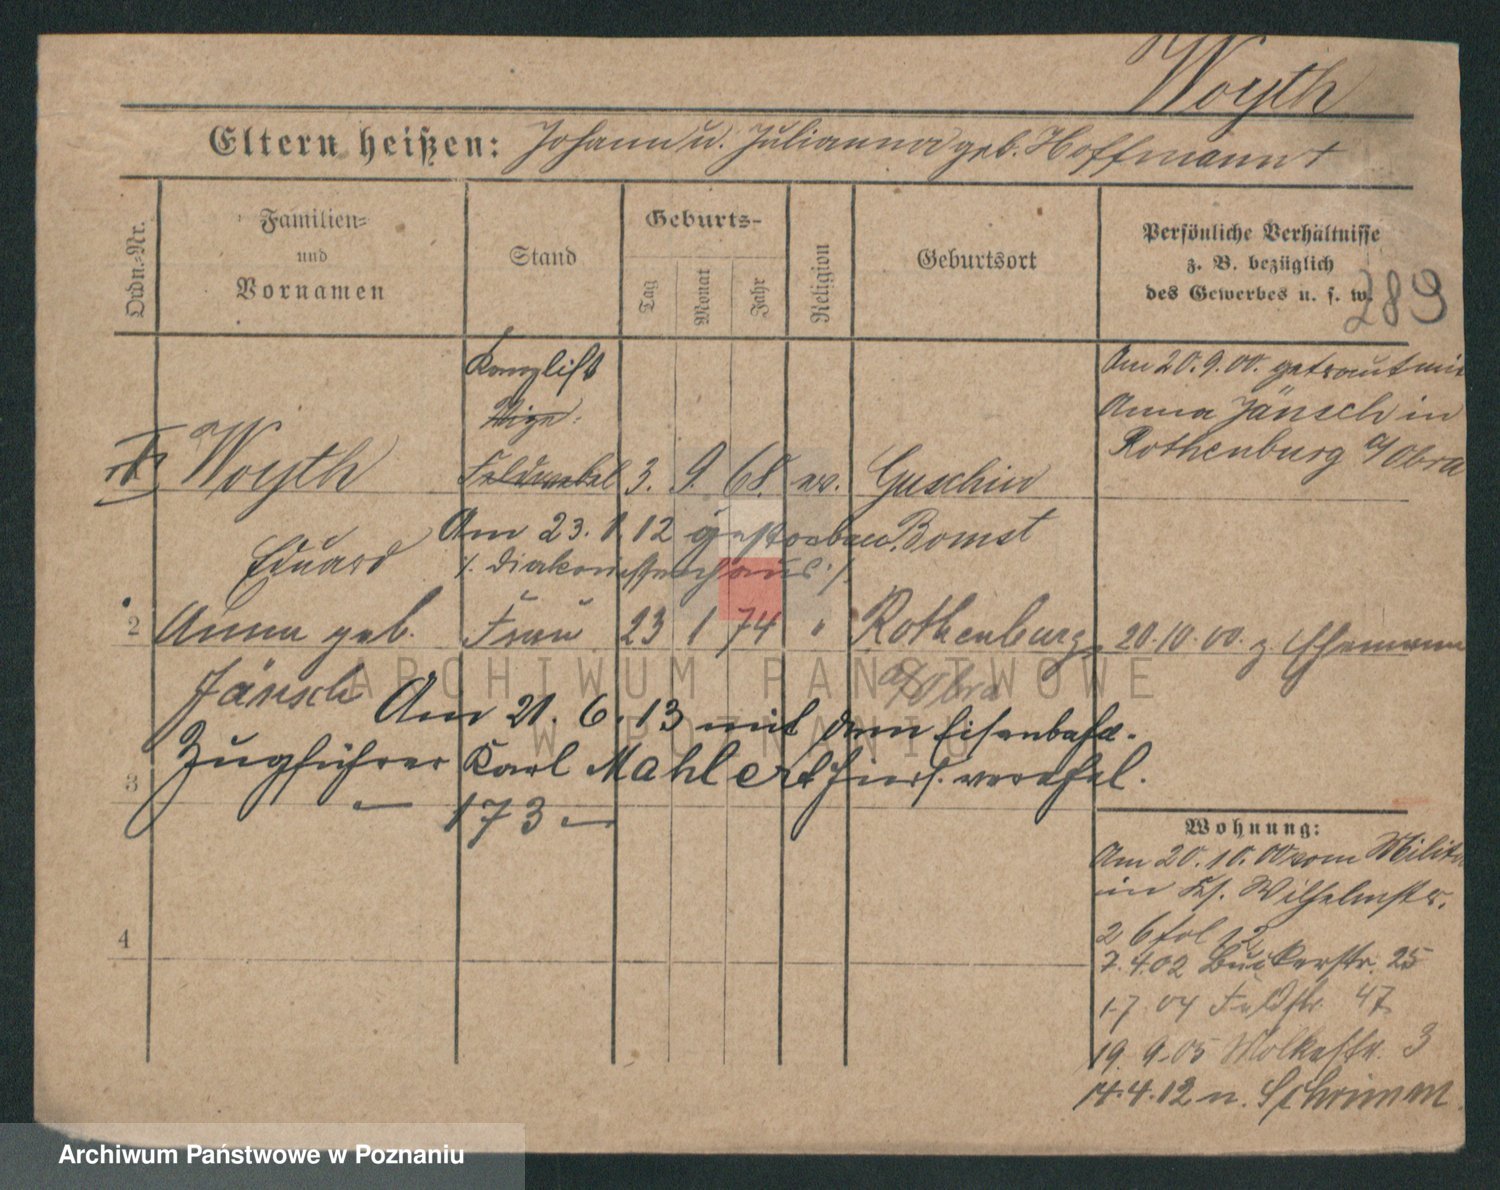 Woyth
Eltern heißen: Johann u. Julianna geb. Hoffmann †
Ordn.-Nr.
Familien-
und
Vornamen
Stand
Geburts-
Tag
Monat
Jahr
Religion
Geburtsort
Persönliche Verhältnisse
z. B. bezüglich
des Gewerbes u. s. w.
289
Kanzlist
Am 20.9.00. getraut mit
Anna Jänsch in
Rothenburg a/Obra
Woyth Feldwebel 3. 9. 68. ev. Guschin
Eduard
Am 23. 1. 12 gestorben. Bomst
/. Diakonissenhaus ./.
2 Anna geb. Frau 23 1 74 " Rothenburg 20.10.00. z. Ehemann
Jänsch a/Obra
Am 21. 6. 13 mit dem Eisenbahn-
Zugführer Karl Mahlert hiers. verehel.
3
— 173 —
4
Wohnung:
Am 20.10.00 vom Militär
in Wilhelmstr.
26 fol 12
7.4.02 Bukerstr. 25
1.7.04 Feldstr. 47
19.9.05 Molkestr. 3
14.4.12 n. Schrimm
ARCHIWUM PAŃSTWOWE
W POZNANIU
Archiwum Państwowe w Poznaniu